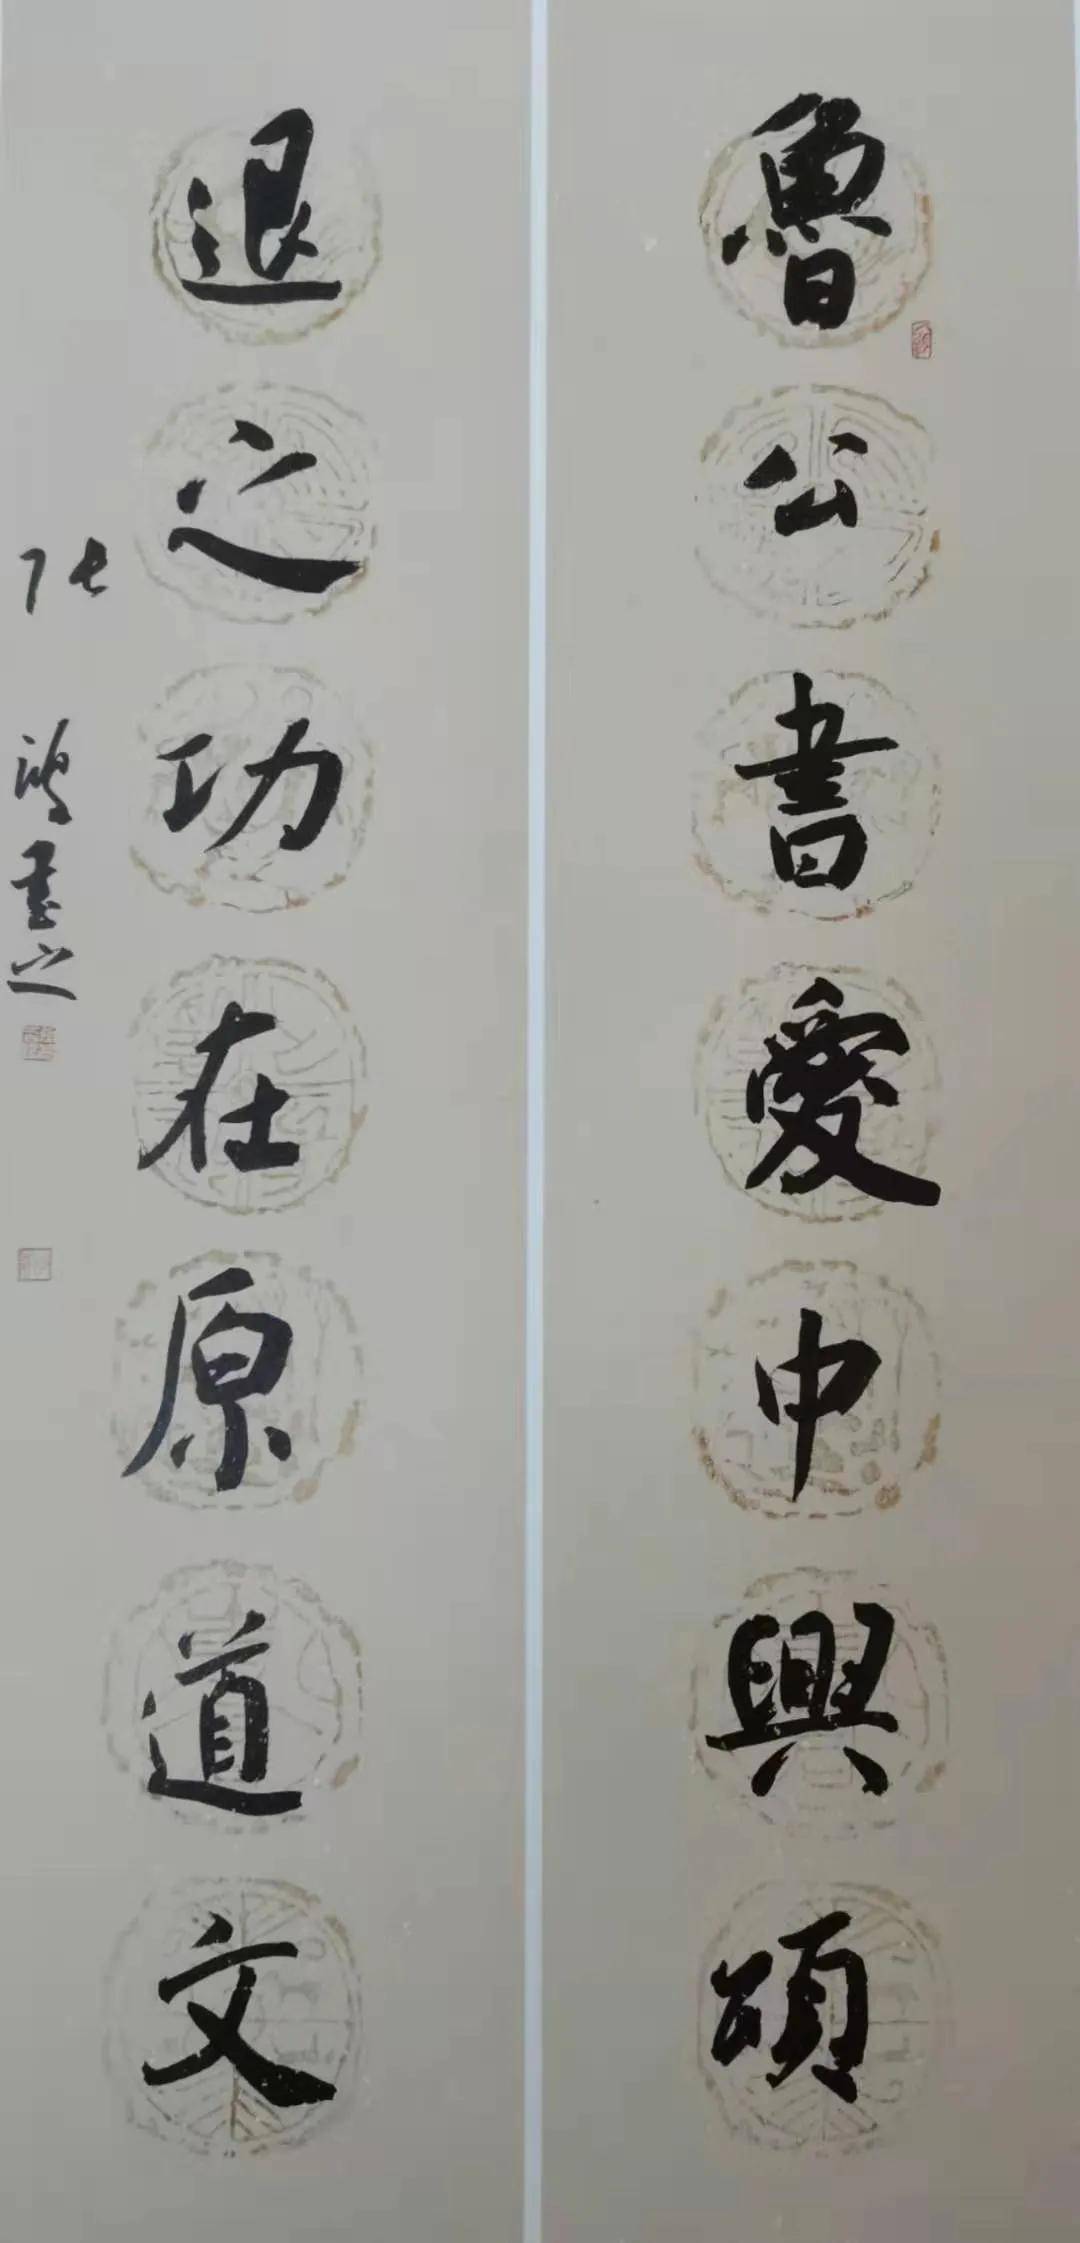 魯公書愛中興頌
退之功在原道文
张鴻書之